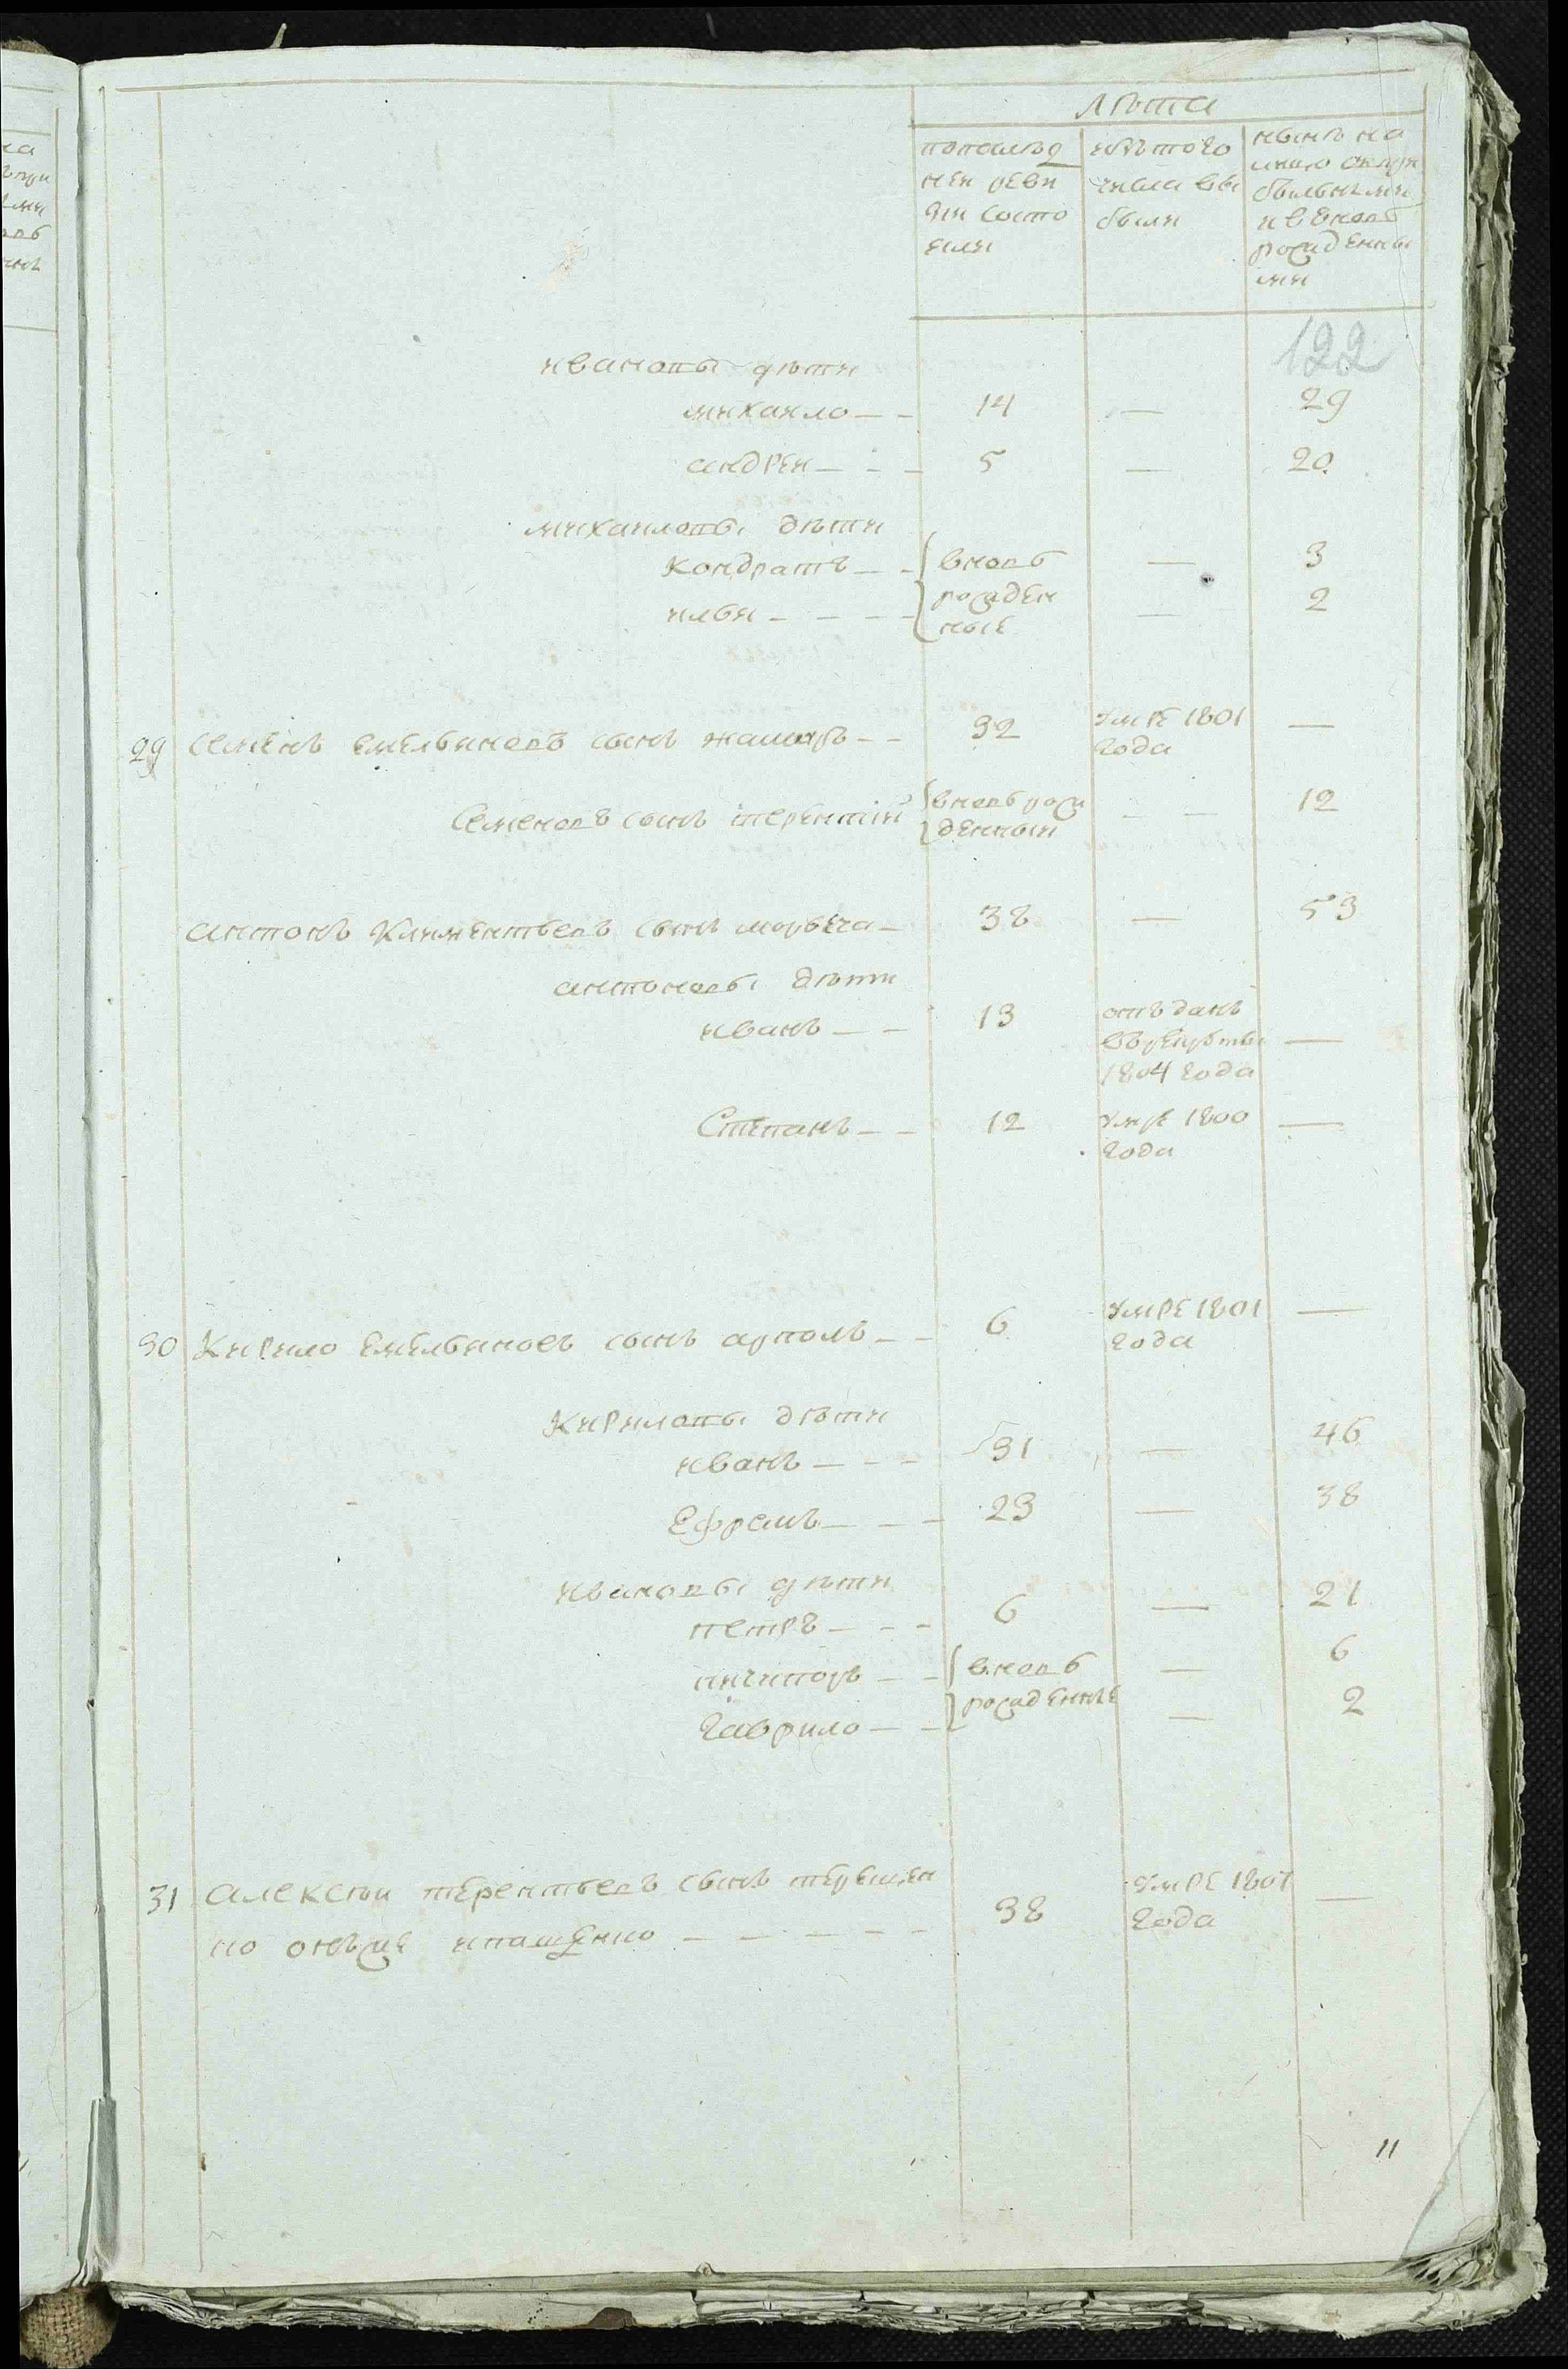 лѣта
попослѣд
ней реви
зіи состо
яли
изътого
числа вы
были
нынѣ на
лицо спри
былыми
и вновь
рожденны
ми
122
ивановы дѣти
михаило — — 14 — 29
андреи — — — 5 — 20
михаиловы дѣти
кондратъ — — вновь — 3
илья — — — — рожден — 2
ные
29 семенъ емельяновъ сынъ — — 32 умре 1801 —
года
семеновъ сынъ терентіи вновь рож — — 12
денныи
антонъ климентьевъ сынъ — 38 — 53
антоновы дѣти
иванъ — — 13 отъданъ —
въ рекруты
1804 года
Степанъ — — 12 умре 1800 —
года
30 Кирило емельяновъ сынъ — — 6 умре 1801 —
года
Кириловы дѣти
иванъ — — — 31 — 46
Ефремъ — — — 23 — 38
ивановы дѣти
петръ — — — 6 — 21
ничипоръ — — вновь — 6
гаврило — — рожденные — 2
31 алексѣи терентьевъ сынъ терещен
ко онъже — — — — — 38 умре 1807 —
года
11